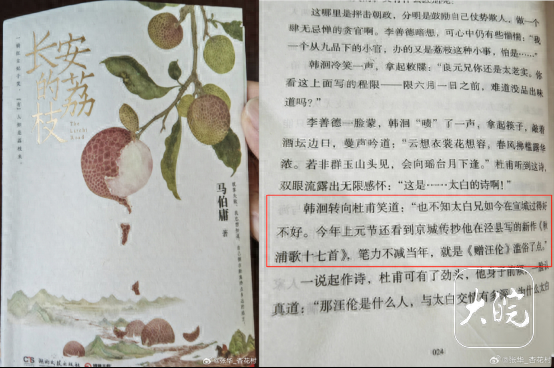 长安的荔枝
The Litchi Road
马伯庸 著
湖南文艺出版社
@张华_杏花村
这哪里是抨击朝政，分明是鼓励自己仗势欺人，做一个
肆无忌惮的贪官啊。李善德暗想，可心中仍有些惴惴：“我
一个从九品下的小官，办的又是荔枝这种小事，怕是……”
韩洄冷笑一声，拿起敕牒：“良元兄你还是太老实。你
看这上面写的程限——限六月一日之前，难道没品出味
道吗？”
李善德一脸蒙，韩洄“啧”了一声，拿起筷子，敲着
酒坛边口，曼声吟道：“云想衣裳花想容，春风拂槛露华
浓。若非群玉山头见，会向瑶台月下逢。”杜甫听到这诗，
双眼流露出无限感怀：“这是……太白的诗啊！”
韩洄转向杜甫笑道：“也不知太白兄如今在宣城过得好
不好。今年上元节还看到京城传抄他在泾县写的新作《秋
浦歌十七首》，笔力不减当年，就是《赠汪伦》滥俗了点。”
一说起作诗，杜甫可有了劲头，他身子前倾，一脸认
真道：“那汪伦是什么人，与太白交情有 为什么太白
大皖
024
@张华_杏花村